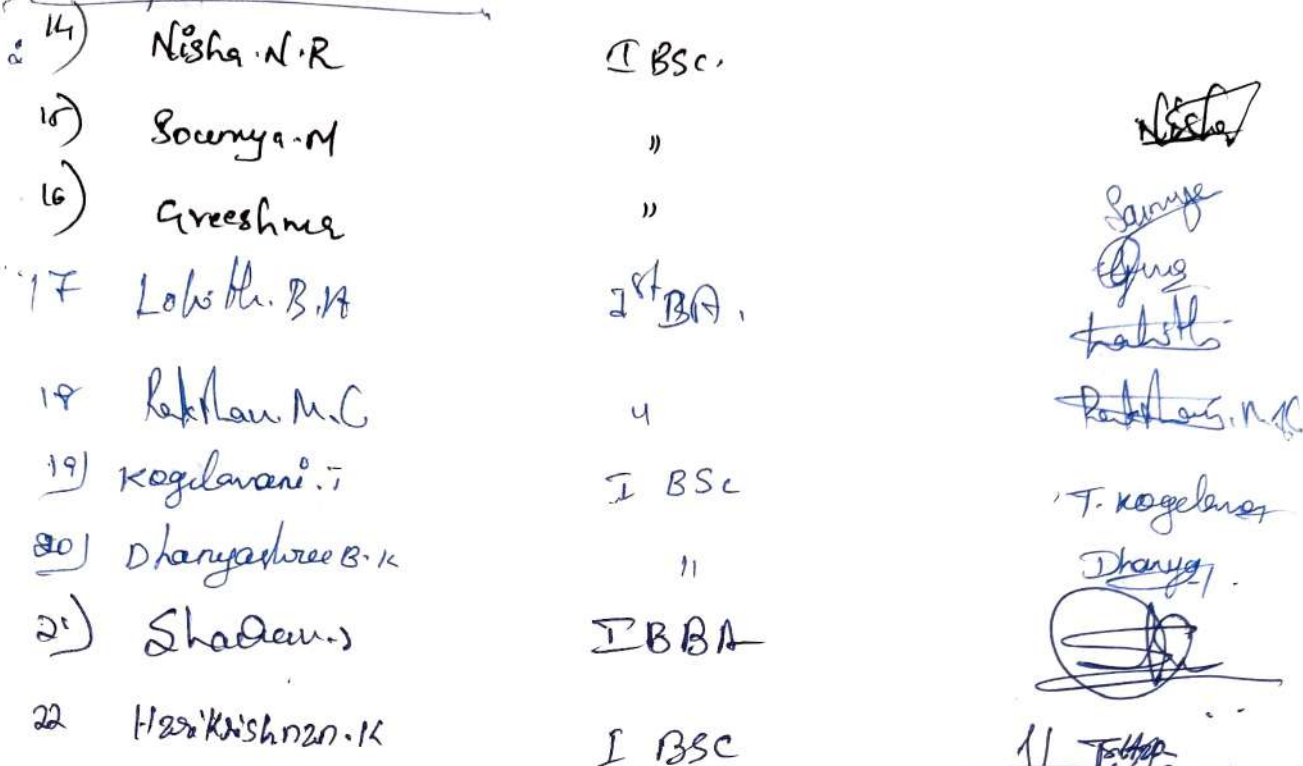 14) Nisha.N.R I BSc. Nisha
15) Sowmya.M " Sowmya
16) Greeshma "
17 Lohith.B.A 1st BA. Lohith
18 Rakshan.M.C "
19) Kogilavani.T I BSc T. Kogilavani
20) Dhanyashree B.K " Dhanya
21) I BBA
22 Harikrishnan.K I BSC